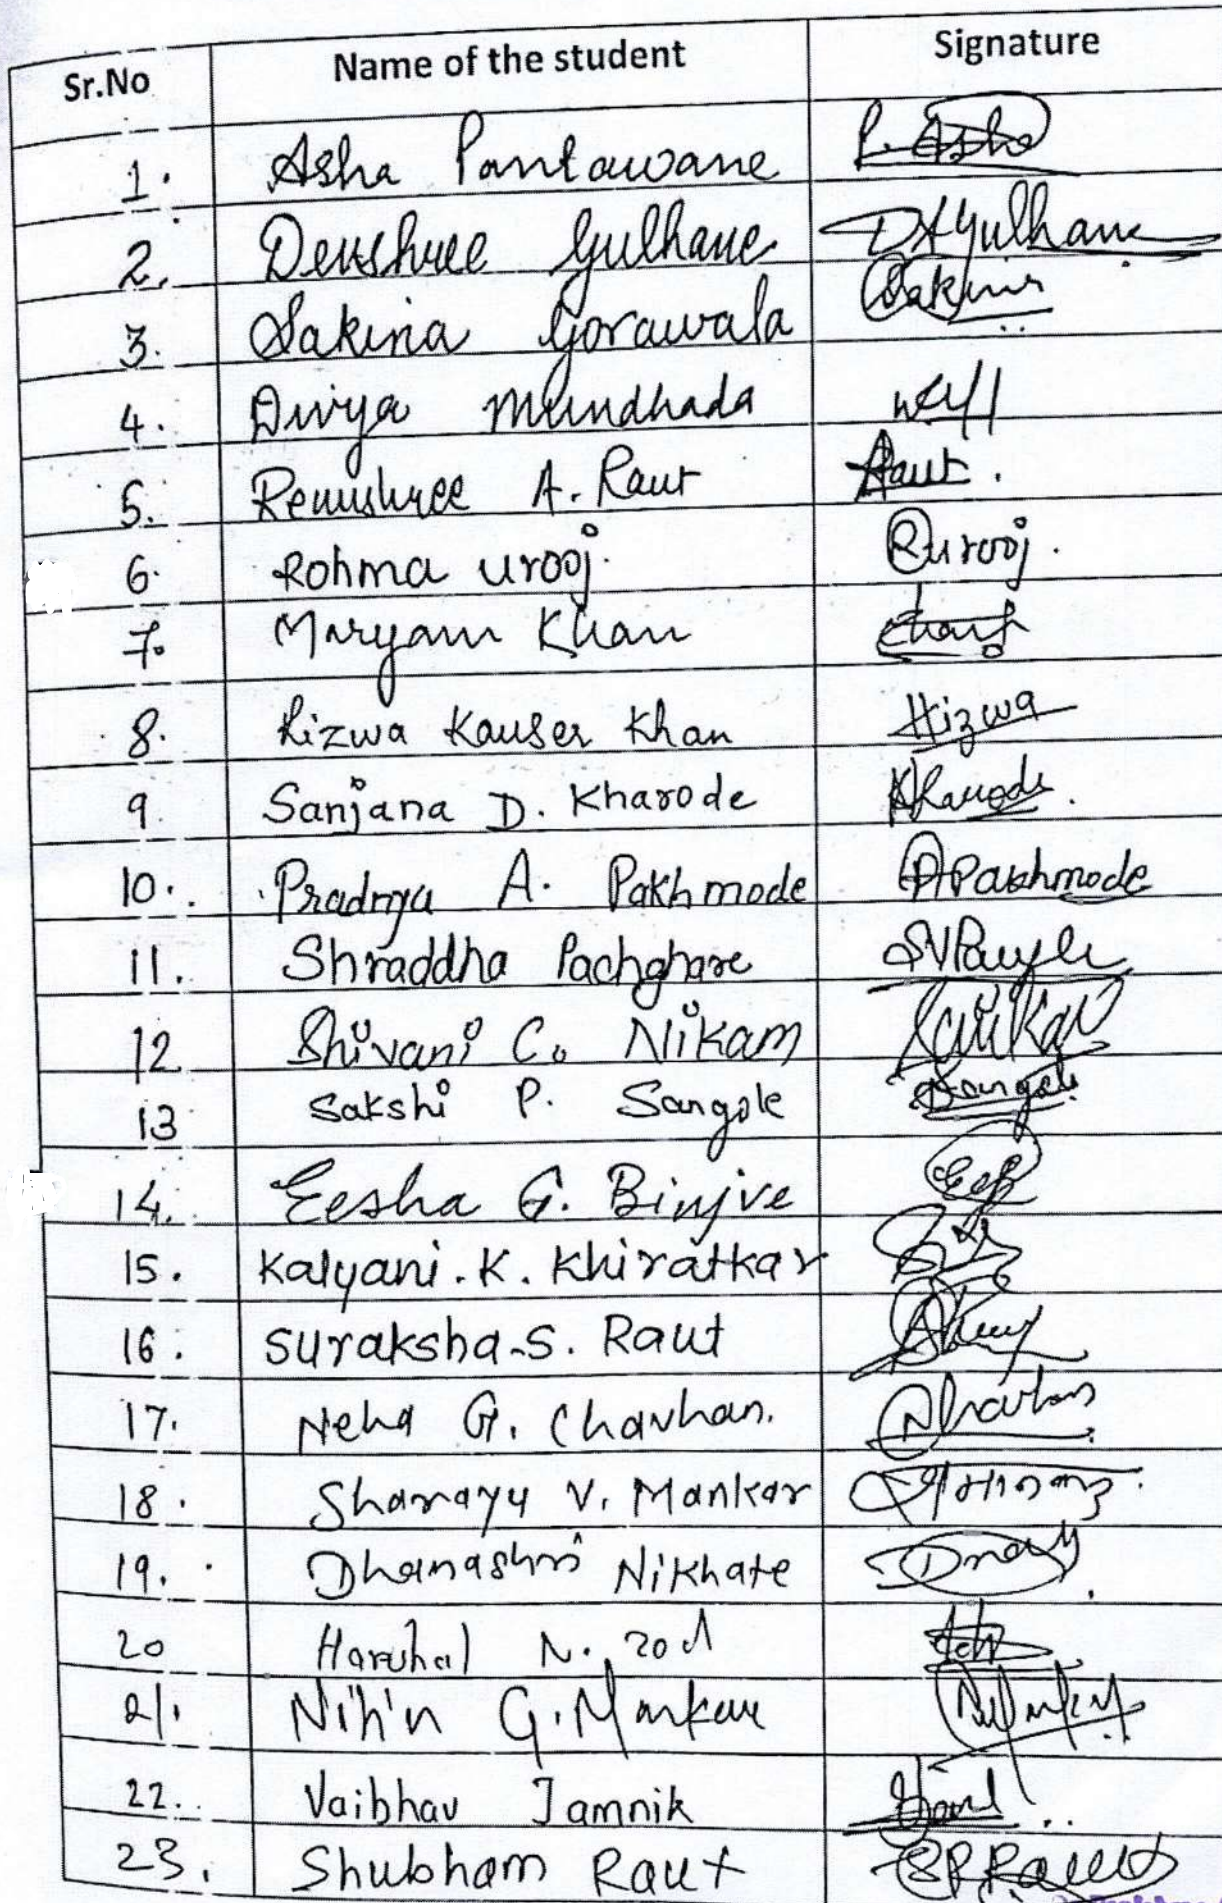 Sr.No Name of the student Signature
1. Asha Pantawane P. Asha
2. Devshree Gulhane DAGulhane
3. Sakina Gorawala Sakina
4. Divya Mundhada
5. Renushree A. Raut Raut.
6. Rohma urooj. Rurooj.
7. Maryam Khan
8. Rizwa Kauser Khan Hizwa
9 Sanjana D. Kharode Kharode.
10. Pradnya A. Pakhmode APakhmode
11. Shraddha Pachghare
12 Shivani C. Nikam
13 Sakshi P. Sangole Sangole
14. Eesha G. Binjve
15. Kalyani. K. Khiratkar
16. Suraksha.S. Raut
17. Neha G. Chavhan. NChavhan
18. Sharayu V. Mankar
19. Dhanashri Nikhate
20 Harshal N. Zod
21. Nitin G. Mankar
22. Vaibhav Jamnik
23. Shubham Raut SPRaut